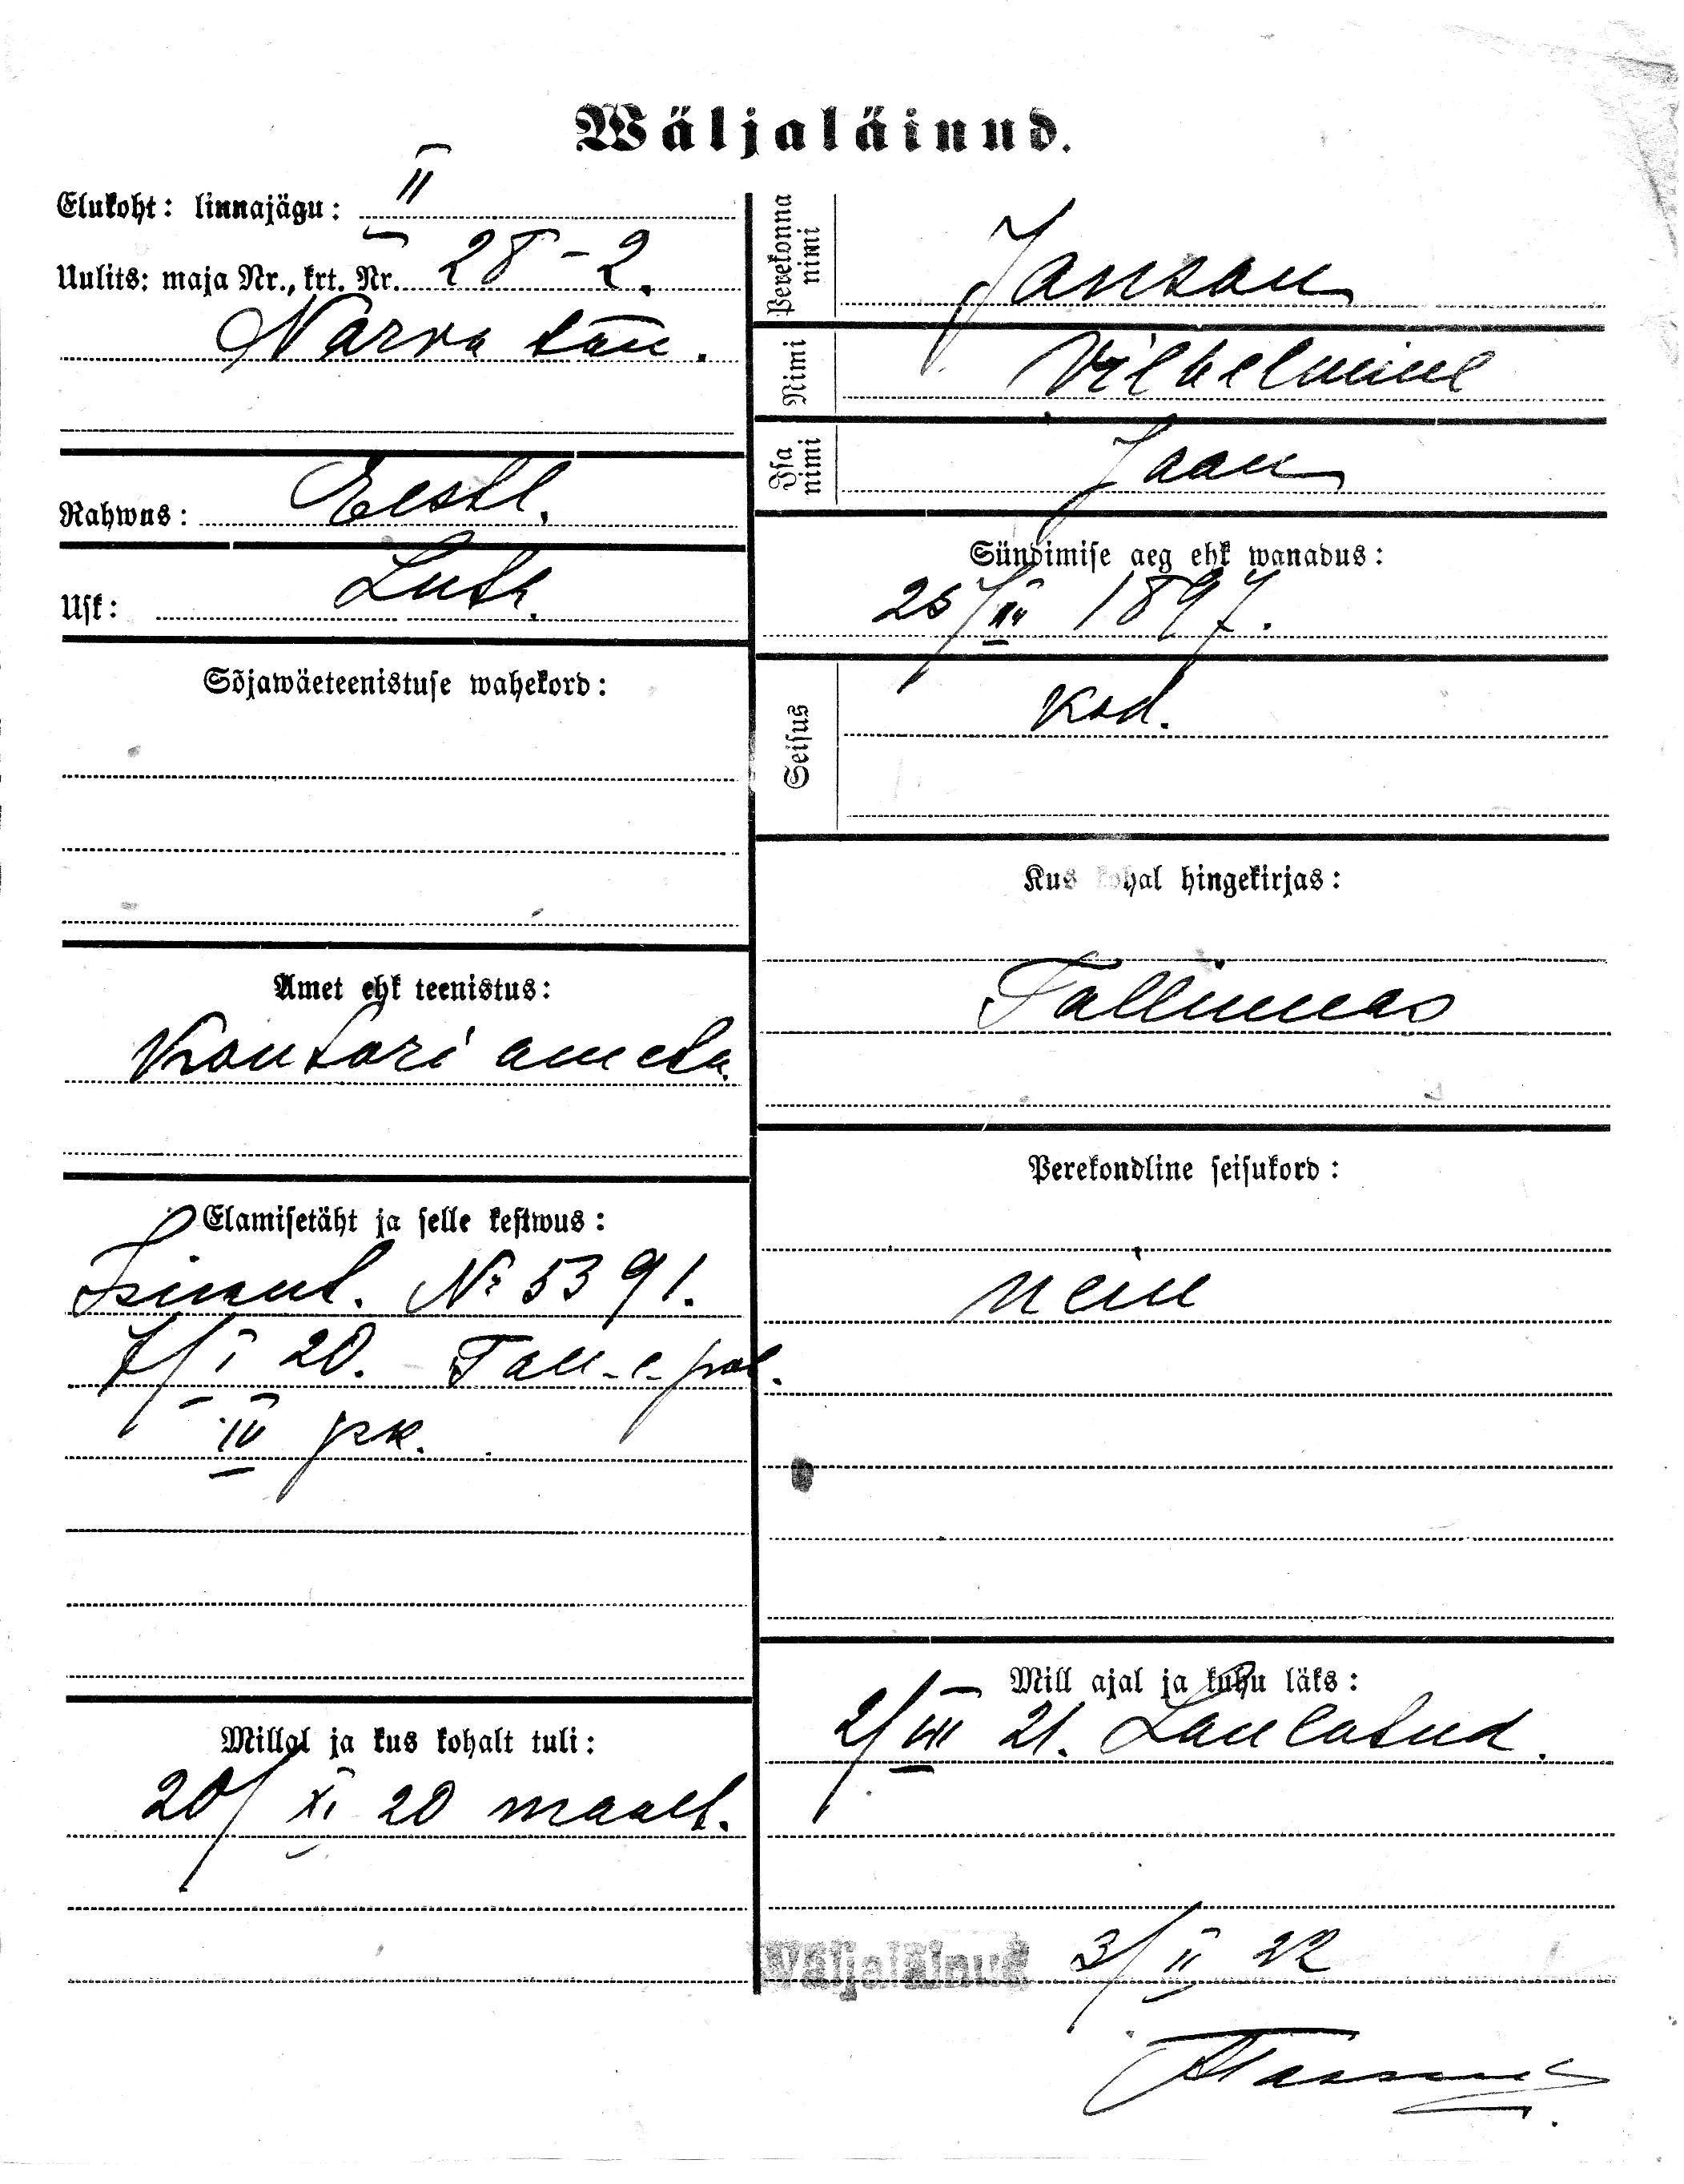 Wäljaläinud.
Elukoht: linnajägu: II
Uulits: maja Nr., krt. Nr. 28-2.
Narva tän.
Rahwus: Eestl.
Usk: Luth.
Sõjawäeteenistuse wahekord:
Amet ehk teenistus:
Kontori ametn.
Elamisetäht ja selle kestwus:
Isikut. № 5391.
7/I 20. Tall-l-pol.
IV jsk.
Millal ja kus kohalt tuli:
20/XI 20 maalt.
Perekonna nimi
Janson
Nimi
Vilhelmine
Isa nimi
Jaan
Sündimise aeg ehk wanadus:
25/III 1897.
Seisus
kod.
Kus kohal hingekirjas:
Tallinnas
Perekondline seisukord:
neiu
Mill ajal ja kuhu läks:
2/VII 21. Laulatud.
Väljaläinud 3/II 22